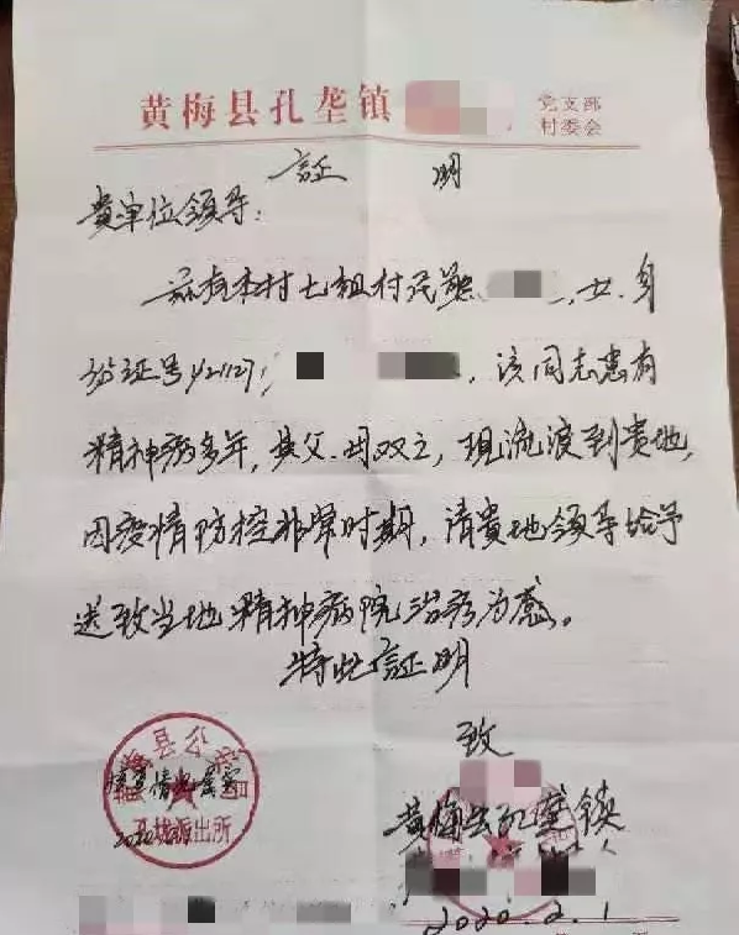 黄梅县孔垄镇
党支部
村委会
証 明
贵单位领导:
兹有本村七组村民熊 , 女. 身
份证号421127 , 该同志患有
精神病多年, 其父.母双亡, 现流浪到贵地,
因疫情防控非常时期, 请贵地领导给予
送致当地精神病院治疗为感。
特此証明
致
黄梅县孔垄镇
2020.2.1
黄梅县公安局
情况属实
孔垅派出所